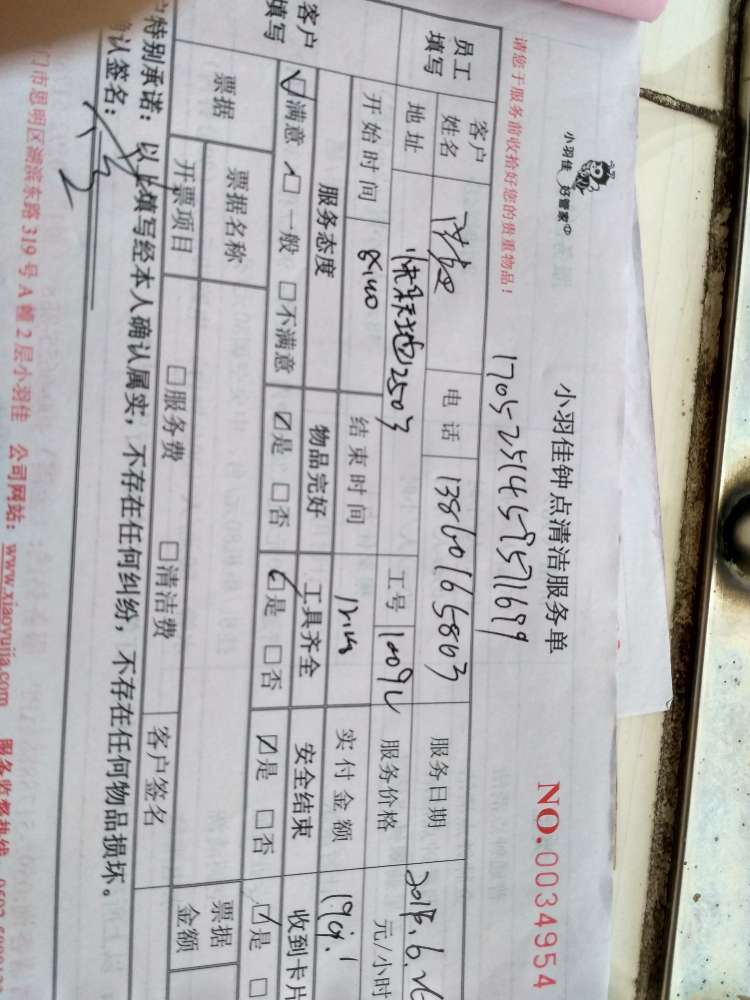 小羽佳 好管家
小羽佳钟点清洁服务单
NO.0034954
请您于服务前收拾好您的贵重物品！
1705251459571699
员工填写 客户姓名 电话 13860165803 服务日期 2018.6.26
地址 2503 工号 服务价格 元/小时
开始时间 结束时间 实付金额
客户填写 服务态度 物品完好 工具齐全 安全结束 收到卡片
满意 □一般 □不满意 ☑是 □否 ☑是 □否 ☑是 □否 ☑是 □
票据 票据名称 票据金额
开票项目 □服务费 □清洁费 客户签名
特别承诺：以上填写经本人确认属实，不存在任何纠纷，不存在任何物品损坏。
确认签名：
门市思明区湖滨东路319号A幢2层小羽佳 公司网站：www.xiaoyujia.com 服务监督热线